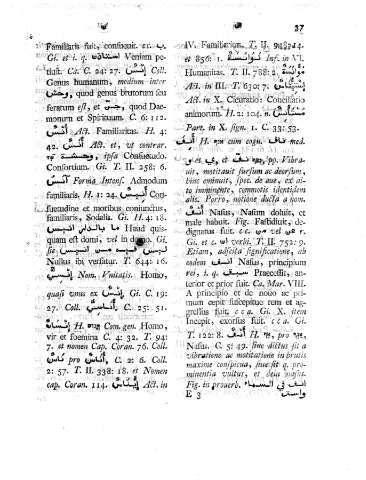 37
Familiaris fuit, consuevit. c. c. ب.
Gi. et i. q. استأنس Veniam pe-
tiuit. Ca. C. 24: 27. إِنْسٌ Coll.
Genus humanum, medium inter
وحش, quod genus brutorum seu
ferarum est, et جن, quod Dae-
monum et Spirituum. C. 6: 112.
أُنْسٌ Act. Familiaritas. H. 4:
42. أَنَسٌ Act. et, vt contrar.
τῷ وحشة, ipsa Consuetudo.
Consortium. Gi. T. II. 258: 6.
أَنِيسٌ Forma Intens. Admodum
familiaris. H. 1: 24. Con-
suetudine et moribus coniunctus,
familiaris, Sodalis. Gi. H. 4: 18.
ما بالدار أنيس Haud quis-
quam est domi, vel in domo. Gi.
ليس فيه أنيس sic
Nullus ibi versatur. T. 644: 16.
إِنْسِيٌّ Nom. Vnitatis. Homo,
quasi vnus ex إنس Gi. C. 19:
27. Coll. أَنَاسِيُّ C. 25: 51.
إِنْسَانٌ H. Com. gen. Homo,
vir et foemina C. 4: 32. T. 94:
7. et nomen Cap. Coran. 76. Coll.
نَاسٌ pro أُنَاسٌ, C. 2: 6. Coll.
2: 57. T. II. 338: 18. et Nomen
cap. Coran. 114. إِينَاسٌ Act. in
IV. Familiaritas. T. II.
et 856: 1. مُؤَانَسَةٌ Inf. in VI.
Humanitas. T. II. 788: 2.
Act. in III. T. 630: 7. اسْتِئْنَاسٌ
Act. in X. Cicuratio: Conciliatio
animorum. H. 2: 104. n. مُسْتَأْنِسٌ
Part. in X. sign. 1. C. 33: 53.
أنف H. cum cogn. ناف med.
و et ى, et pp. Vibra-
uit, motitauit sursum ac deorsum,
hinc eminuit, spec. de aue, ex al-
to imminente, commotis identidem
alis. Porro, notione ducta a nom.
أَنْفٌ Nasus, Nasum doluit, et
male habuit. Fig. Fastidiuit, de-
dignatus fuit. c. c. من vel عن r.
Gi. et c. ان verbi. T. II. 752: 9.
Etiam, adscita significatione, ab
eodem أنف Nasus, principium
rei, i. q. سبق Praecessit, an-
terior et prior fuit. Ca. Mar. VIII.
A principio et de nouo ac pri-
mum cepit suscepitue rem et ag-
gressus fuit; c c a. Gi. X. item
Incepit, exorsus fuit. c c a. Gi.
T. 122: 8. أَنْفٌ H. pro
Nasus. C. 5: 49. siue dictus sit a
vibratione ac motitatione in brutis
maxime conspicua, siue sit q. pro-
minentia vultus, et deia nasus.
Fig. in prouerb. أنف في السماء
E 3
واست